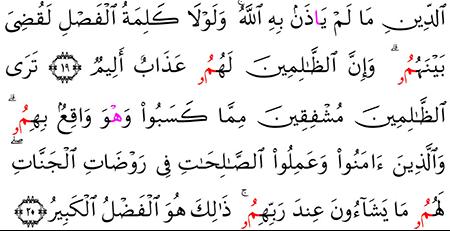 الدِّينِ مَا لَمْ يَاذَنۢ بِهِ اللَّهُ ۚ وَلَوْلَا كَلِمَةُ الْفَصْلِ لَقُضِيَ
بَيْنَهُمُۥ ۗ وَإِنَّ الظَّالِمِينَ لَهُمُۥ عَذَابٌ أَلِيمٌ ﴿١٩﴾ تَرَى
الظَّالِمِينَ مُشْفِقِينَ مِمَّا كَسَبُواْ وَهْوَ وَاقِعٌۢ بِهِمُۥ ۗ
وَالَّذِينَ ءَامَنُواْ وَعَمِلُواْ الصَّالِحَاتِ فِي رَوْضَاتِ الْجَنَّاتِ ۖ
لَهُمُۥ مَا يَشَآءُونَ عِندَ رَبِّهِمُۥ ۚ ذَالِكَ هُوَ الْفَضْلُ الْكَبِيرُ ﴿٢٠﴾